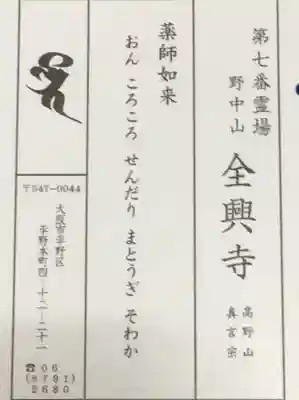 第七番霊場
野中山
全興寺
高野山
真言宗
薬師如来
おん ころころ せんだり まとうぎ そわか
〒547-0044
大阪市平野区
平野本町四-十二-二十一
☎06
(6791)
2680